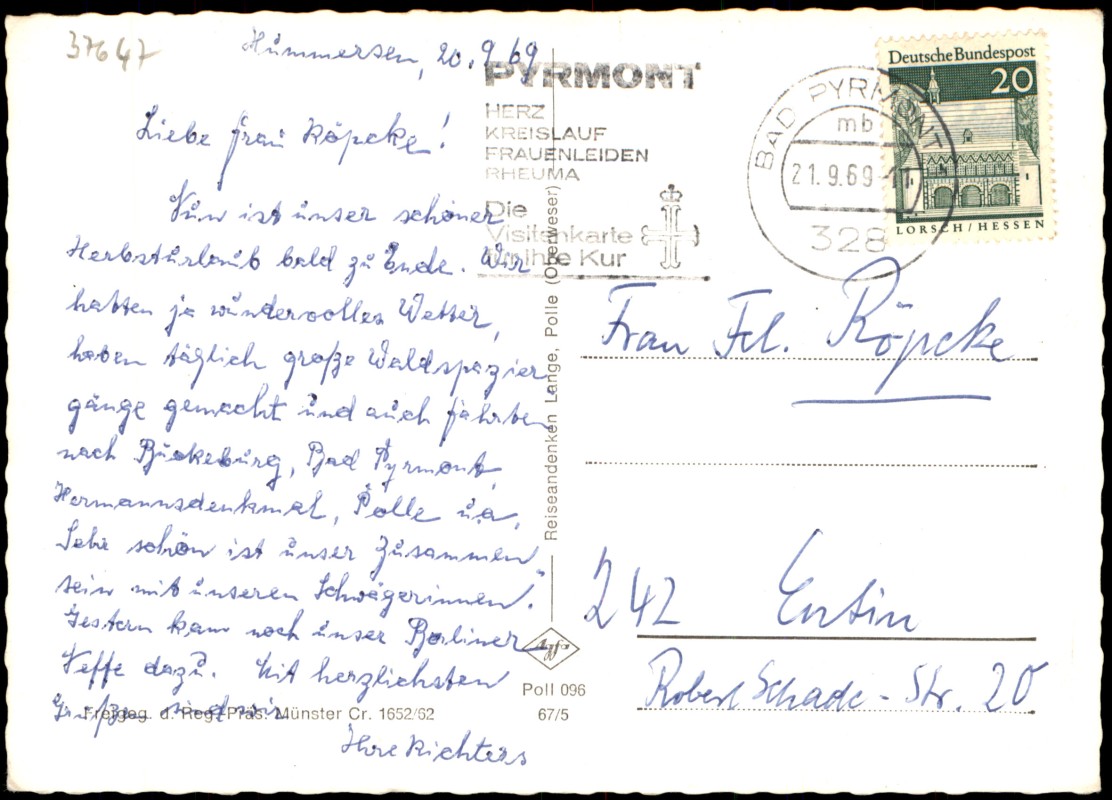 37647
Hummersen, 20.9.69
Liebe Frau Köpcke!
Nun ist unser schöner
Herbsturlaub bald zu Ende. Wir
hatten ja wundervolles Wetter,
haben täglich große Waldspazier-
gänge gemacht und auch Fahrten
nach Bückeburg, Bad Pyrmont,
Hermannsdenkmal, Polle u.a.
Sehr schön ist unser Zusammen-
sein mit unseren Schwägerinnen!
Gestern kam noch unser Berliner
Neffe dazu. Mit herzlichsten
Grüßen sind wir
Ihre Richters
PYRMONT
HERZ
KREISLAUF
FRAUENLEIDEN
RHEUMA
Die
Visitenkarte
für Ihre Kur
BAD PYRMONT
mb
21.9.69-11
328
Deutsche Bundespost
20
LORSCH/HESSEN
Reiseandenken Lange, Polle (Oberweser)
Agfa
Poll 096
67/5
Freigeg. d. Reg. Präs. Münster Cr. 1652/62
Frau Fcl. Köpcke
242 Eutin
Robert Schade-Str. 20